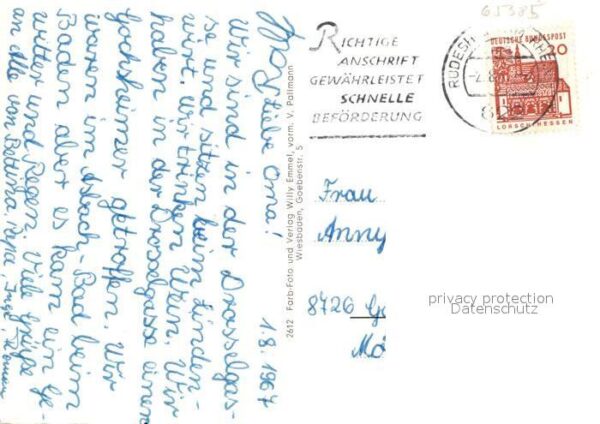 1.8.1967
Liebe Oma!
Wir sind in der Drosselgas-
se und sitzen beim Linden-
wirt, wir trinken Wein. Wir
haben in der Drosselgasse einen
Hochheimer getroffen. Wir
waren im Asbach-Bad beim
Baden aber es kam ein Ge-
witter und Regen. Viele Grüße
an alle von Bettina, Papa, Inge,
2612 Farb-Foto und Verlag Willy Emmel, vorm. V. Pollmann
Wiesbaden, Goebenstr. 5
65385
RICHTIGE
ANSCHRIFT
GEWÄHRLEISTET
SCHNELLE
BEFÖRDERUNG
DEUTSCHE BUNDESPOST
20
LORSCH/HESSEN
Frau
Anny
8726
privacy protection
Datenschutz